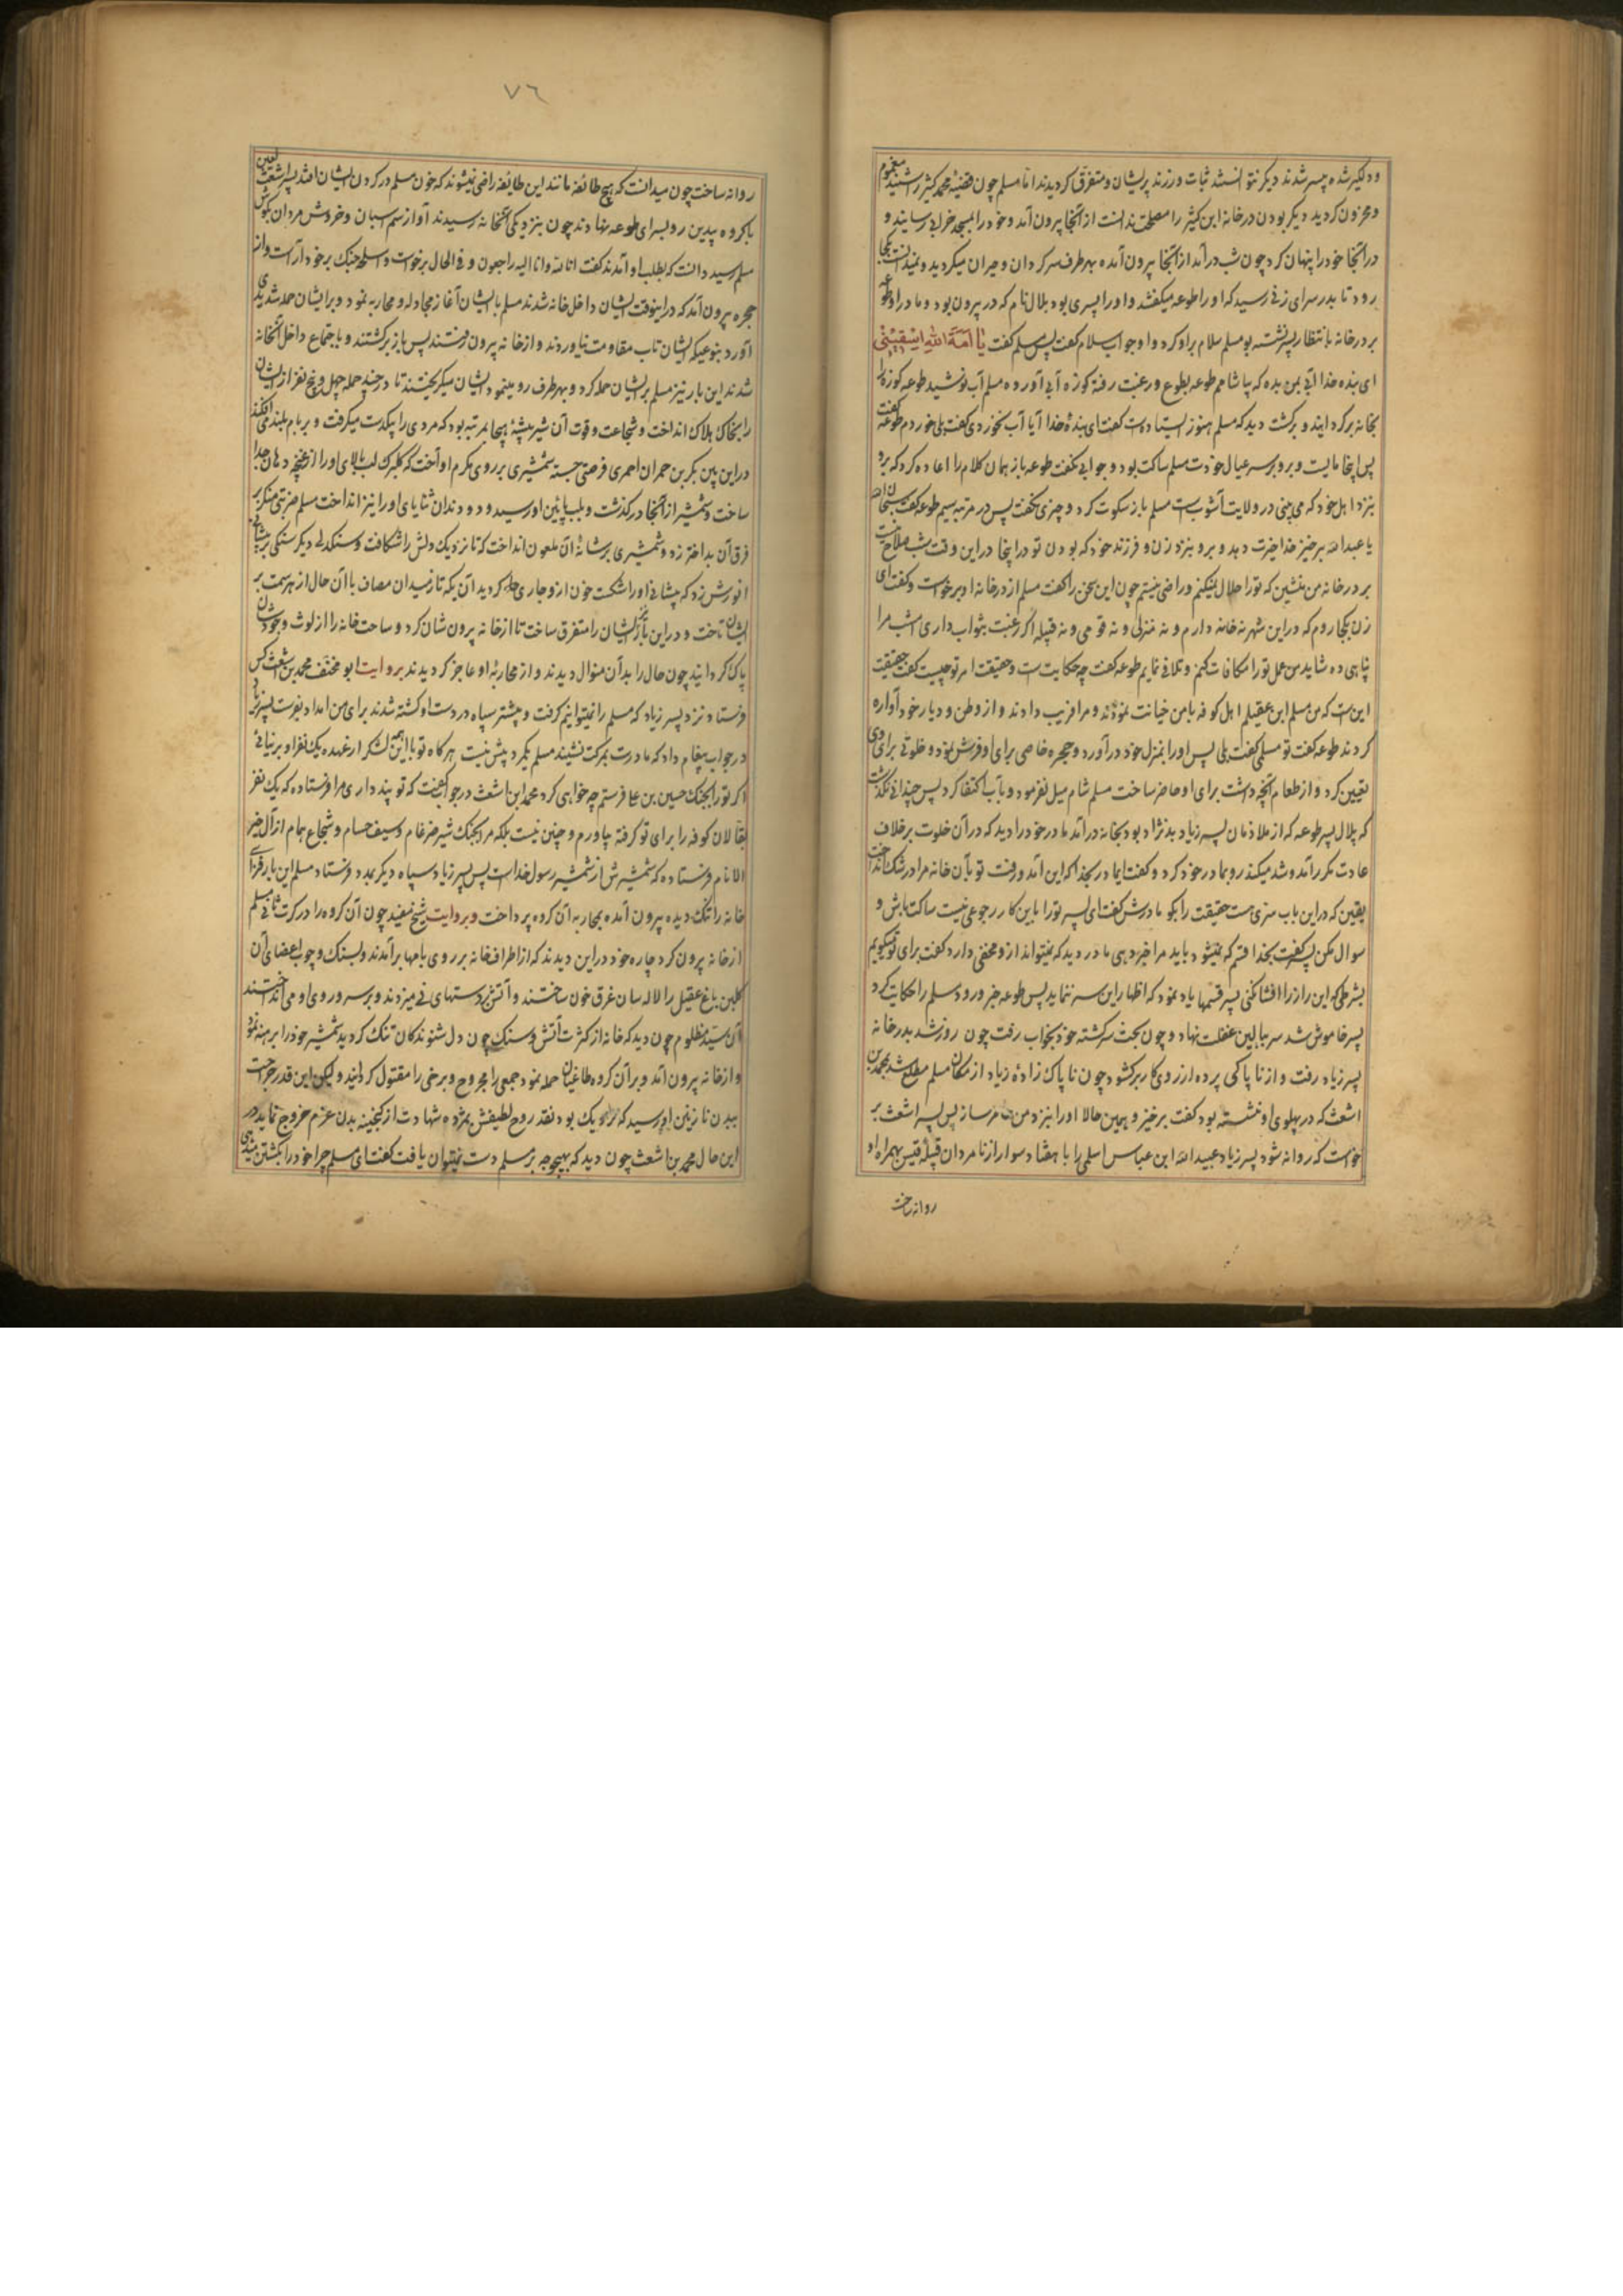 ودلگیر شده پسر شدند دیگر نتوانستند ثبات ورزند پریشان و متفرق گردیدند اما مسلم چون قضیه محمد کثیر را شنید مغموم
و محزون گردید دیگر بودن در خانه ابن کثیر را مصلحت ندانست از آنجا بیرون آمد و خود را بمسجد خرابی رسانید و
در آنجا خود را پنهان کرد چون شب در آمد از آنجا بیرون آمده بهر طرف سرگردان و حیران میگردید و نمیدانست بکجا
رود تا بدر سرای زنی رسید که او را طوعه میگفتند و او را پسری بود بلال نام که در بیرون بود و مادر او طوعه
بر در خانه بانتظار پسر نشسته بود مسلم سلام بر او کرد و او جواب سلام گفت پس مسلم گفت یَا اَمَةَ اللهِ اِسْقِیْنِی
ای بنده خدا آبی بمن بده که بیاشامم طوعه بطوع و رغبت رفته کوزه آبی آورده مسلم آب نوشید طوعه کوزه را
بخانه برگردانید و برگشت دید که مسلم هنوز ایستاده است گفت ای بندهٔ خدا آیا آب نخوردی گفت بلی خوردم طوعه گفت
پس اینجا مایست و برو بر سر عیال خودت مسلم ساکت بود و جوابی نگفت طوعه باز همان کلام را اعاده کرد که برو
بنزد اهل خود که می بینی در ولایت آشوب است مسلم باز سکوت کرد و چیزی نگفت پس در مرتبه سیم طوعه گفت سبحان الله
یا عبدالله برخیز خدا خیرت دهد و برو بنزد زن و فرزند خود که بودن تو در اینجا در این وقت شب صلاح نیست
بر در خانه من منشین که تو را حلال نمیکنم و راضی نیستم چون این سخن را گفت مسلم از در خانه او برخواست و گفت ای
زن بکجا روم که در این شهر نه خانه دارم و نه منزلی و نه قومی و نه قبیله اگر رغبت بثواب داری امشب مرا
پناهی ده شاید من عمل تو را مکافات کنم و تلافی نمایم طوعه گفت چه حکایت است و حقیقت امر تو چیست گفت حقیقت
این است که من مسلم ابن عقیلم اهل کوفه با من خیانت نمودند و مرا فریب دادند و از وطن و دیار خود آواره
کردند طوعه گفت تو مسلمی گفت بلی پس او را بمنزل خود در آورد و حجره خاصی برای او فرش نمود و خلوتی برای وی
تعیین کرد و از طعام آنچه داشت برای او حاضر ساخت مسلم شام میل نفرمود و بآب اکتفا کرد پس چندانی نگذشت
که بلال پسر طوعه که از ملازمان پسر زیاد بدنژاد بود بخانه در آمد مادر خود را دید که در آن خلوت بر خلاف
عادت مکرر آمد و شد میکند رو بمادر خود کرد و گفت ای مادر بخدا که این آمد و رفت تو بآن خانه مرا در شک انداخت
یقین که در این باب سری هست حقیقت را بگو مادرش گفت ای پسر تو را باین کار رجوعی نیست ساکت باش و
سوال مکن پسر گفت بخدا قسم که نمیشود باید مرا خبر دهی مادر دید که نمیتواند از او مخفی دارد گفت برای تو میگویم
بشرطی که این راز را افشا نکنی پسر قسمها یاد نمود که اظهار این سر ننماید پس طوعه خبر ورود مسلم را حکایت کرد
پسر خاموش شد سر ببالین غفلت نهاد و چون بخت سرگشته خود بخواب رفت چون روز شد بدر خانه
پسر زیاد رفت و از ناپاکی پرده از روی کار برگشود چون ناپاک زادهٔ زیاد از مکان مسلم مطلع شد بمحمد بن
اشعث که در پهلوی او نشسته بود گفت برخیز و همین حالا او را بنزد من حاضر ساز پس پسر اشعث بر
خواست که روانه شود پسر زیاد عبیدالله ابن عباس اسلمی را با هفتاد سوار از نامردان قبیله قیس بهمراه او
روانه ساخت
٧٦
روانه ساخت چون میدانست که هیچ طائفه مانند این طائفه راضی نمیشوند که خون مسلم در گردن ایشان افتد پسر اشعث لعین
با گروه بیدین رو بسرای طوعه نهادند چون بنزدیکی آنخانه رسیدند آواز سم اسبان و خروش مردان بگوش
مسلم رسید دانست که بطلب او آمدند گفت انا لله و انا الیه راجعون و فی الحال برخواست و اسلحه جنگ بر خود آراست و از
حجره بیرون آمد که در اینوقت ایشان داخل خانه شدند مسلم با ایشان آغاز مجادله و محاربه نمود و بر ایشان حمله شدیدی
آورد بنوعیکه ایشان تاب مقاومت نیاوردند و از خانه بیرون رفتند پس باز برگشتند و باجتماع داخل آنخانه
شدند این بار نیز مسلم بر ایشان حمله کرد و بهر طرف رو مینمود ایشان میگریختند تا در چند حمله چهل و پنج نفر از ایشان
را بخاک هلاک انداخت و شجاعت و قوت آن شیر بیشهٔ هیجا بمرتبه بود که مردی را بیکدست میگرفت و بر بام بلند می افکند
در این بین بکر بن حمران احمری فرصتی جسته شمشیری بر روی مکرم او آخت که گلبرگ لب بالای او را از غنچه دهان جدا
ساخت و شمشیر از آنجا در گذشت و بلب پائین او رسید و دو دندان ثنایای او را نیز انداخت مسلم ضربتی منکر بر
فرق آن بد اختر زد و شمشیری بر شانهٔ آن ملعون انداخت که تا نزدیک دلش را شکافت و سنگدلی دیگر سنگی بر پیشانی
انورش زد که پیشانی او را شکست خون از او جاری گردید آن یکه تاز میدان مصاف با آن حال از هر سمت بر
ایشان تاخت و در این بار نیز ایشان را متفرق ساخت تا از خانه بیرون شان کرد و ساحت خانه را از لوث وجودشان
پاک گردانید چون حال را بدآن منوال دیدند و از محاربهٔ او عاجز گردیدند بروایت ابو مخنف محمد بن اشعث کس
فرستاد نزد پسر زیاد که مسلم را نمیتوانیم گرفت و بیشتر سپاه در دست او کشته شدند برای من امداد بفرست پسر زیاد
در جواب پیغام داد که مادرت بمرگت نشیند مسلم یکمرد بیش نیست هرگاه تو با این همه لشکر از عهده یک نفر او برنیائی
اگر تو را بجنگ حسین بن علی فرستم چه خواهی کرد محمد ابن اشعث در جواب گفت که تو پنداری مرا فرستاده که یک نفر
بقالان کوفه را برای تو گرفته بیاورم و چنین نیست بلکه مرا بجنگ شیر ضرغام و سیف حسام و شجاع همام از آل خیر
الانام فرستاده که شمشیرش از شمشیر رسول خداست پس پسر زیاد سپاه دیگر بمدد فرستاد مسلم این بار فضای
خانه را تنگ دیده بیرون آمده بمحاربه آن گروه پرداخت و بروایت شیخ مفید چون آن گروه را در کرت ثانی مسلم
از خانه بیرون کرد چاره خود در این دیدند که از اطراف خانه بر روی بامها برآمدند و بسنگ و چوب اعضای آن
گلبن باغ عقیل را لاله سان غرق خون ساختند و آتش بر دستهای نی میزدند و بر سر و روی او می انداختند
آن سید مظلوم چون دید که خانه از کثرت آتش و سنگ چون دل شنوندگان تنگ گردید شمشیر خود را برهنه نمود
و از خانه بیرون آمد و بر آن گروه طاغیان حمله نمود جمعی را مجروح و برخی را مقتول گردانید و لیکن این قدر جراحت
ببدن نازنین او رسید که نزدیک بود نقد روح لطیفش بمژده شهادت از گنجینه بدن عزم خروج نماید در
این حال محمد بن اشعث چون دید که بهیچوجه بر مسلم دست نمیتوان یافت گفت ای مسلم چرا خود را بکشتن میدهی